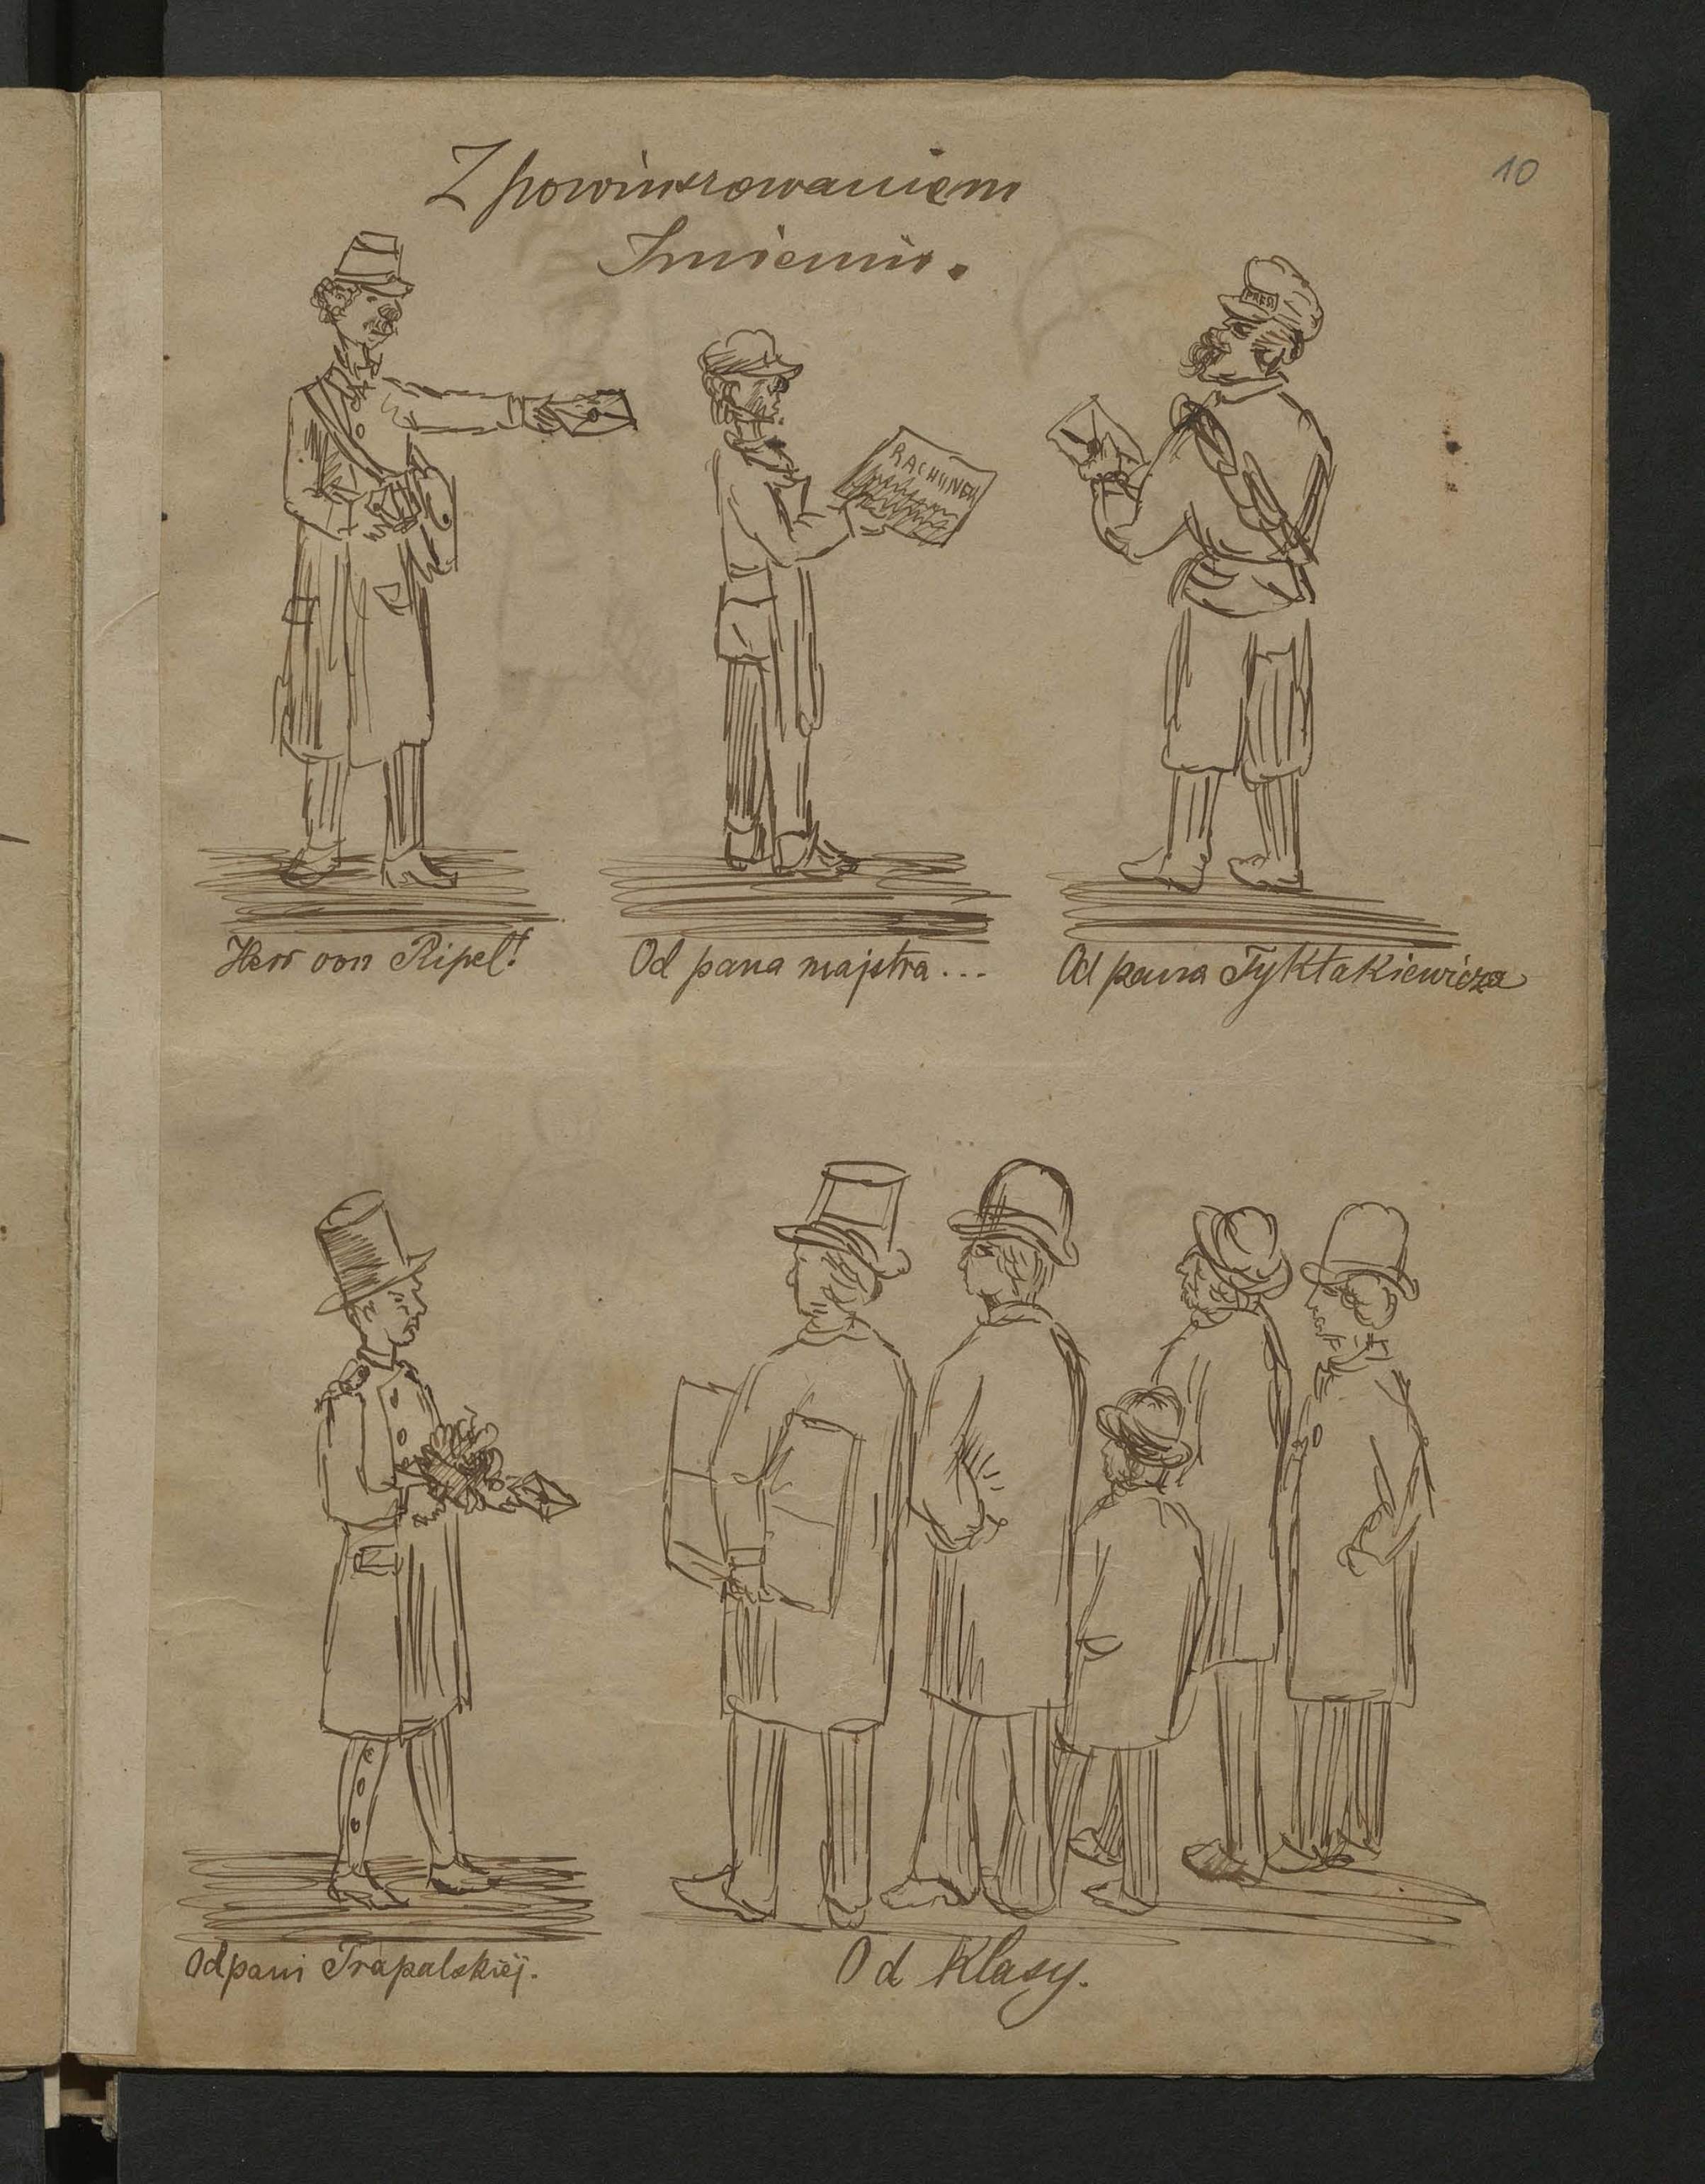 10
Z powinszowaniem
Imienin.
PRESS
RACHUNEK
Herr von Ripel!
Od pana majstra...
Od pana Tyktakiewicza
Od pani Trapalskiéj.
Od Klasy.